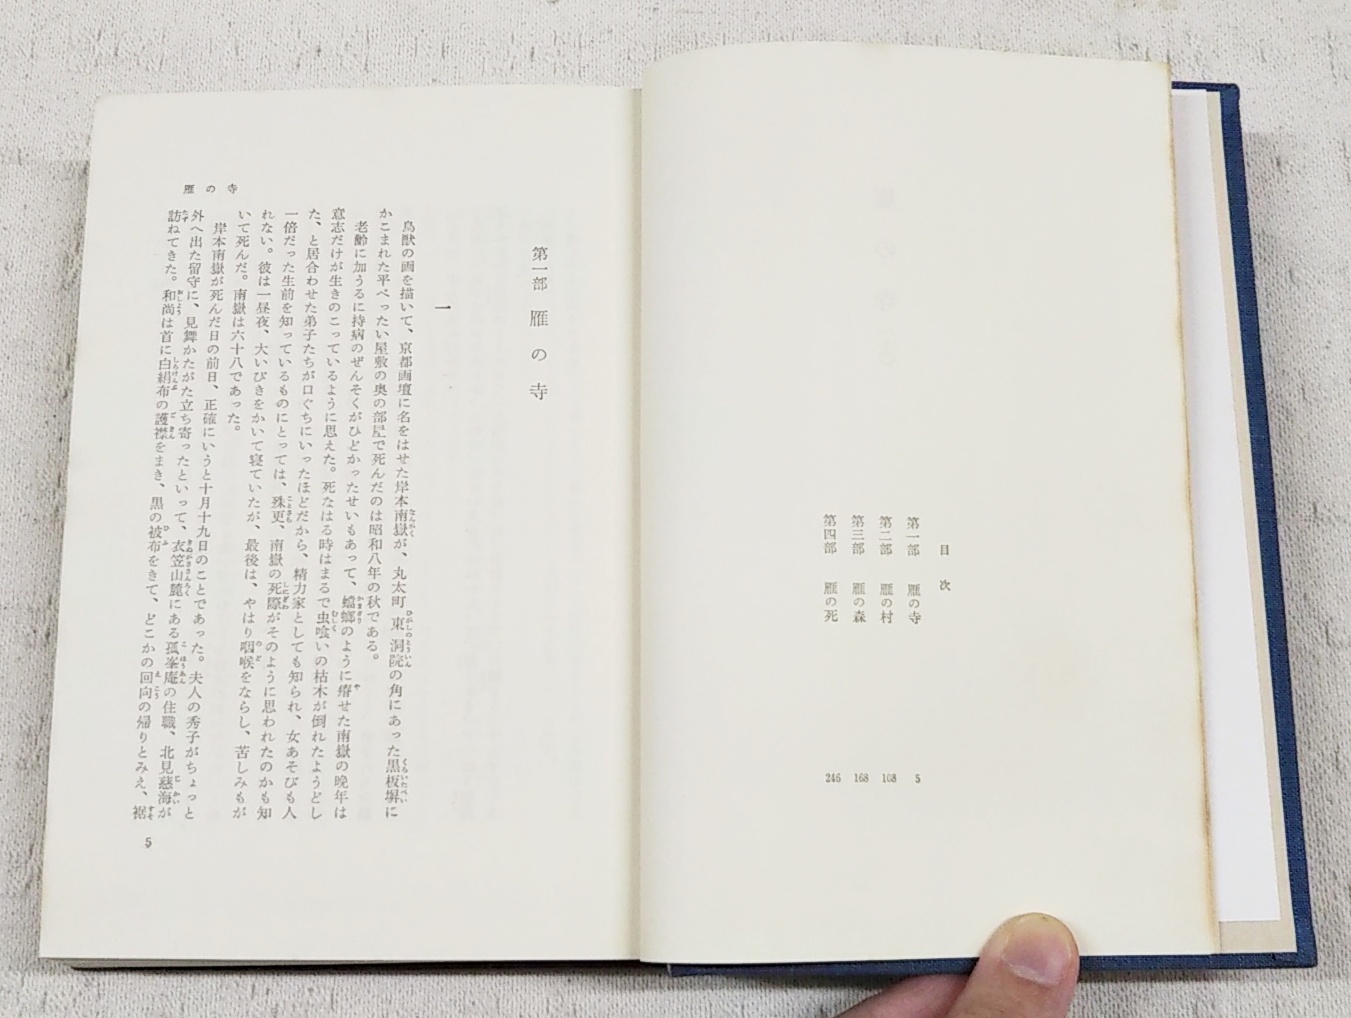 目次
第一部 雁の寺 5
第二部 雁の村 108
第三部 雁の森 168
第四部 雁の死 246
第一部 雁の寺
一
鳥獣の画を描いて、京都画壇に名をはせた岸本南嶽が、丸太町東洞院の角にあった黒板塀に
なんがく
ひがしのとういん
くろいたべい
かこまれた平べったい屋敷の奥の部屋で死んだのは昭和八年の秋である。
老齢に加うるに持病のぜんそくがひどかったせいもあって、蟷螂のように瘠せた南嶽の晩年は
かまきり
や
意志だけが生きのこっているように思えた。死なはる時はまるで虫喰いの枯木が倒れたようどし
むしく
た、と居合わせた弟子たちが口ぐちにいったほどだから、精力家としても知られ、女あそびも人
一倍だった生前を知っているものにとっては、殊更、南嶽の死際がそのように思われたのかも知
ことさら
しにぎわ
れない。彼は一昼夜、大いびきをかいて寝ていたが、最後は、やはり咽喉をならし、苦しみもが
のど
いて死んだ。南嶽は六十八であった。
岸本南嶽が死んだ日の前日、正確にいうと十月十九日のことであった。夫人の秀子がちょっと
外へ出た留守に、見舞かたがた立ち寄ったといって、衣笠山麓にある孤峯庵の住職、北見慈海が
きぬがささんろく
こほうあん
じかい
訪ねてきた。和尚は首に白絹布の護襟をまき、黒の被布をきて、どこかの回向の帰りとみえ、裾
たず
おしょう
しろけんぷ
ごきん
ひふ
えこう
すそ
雁の寺
5